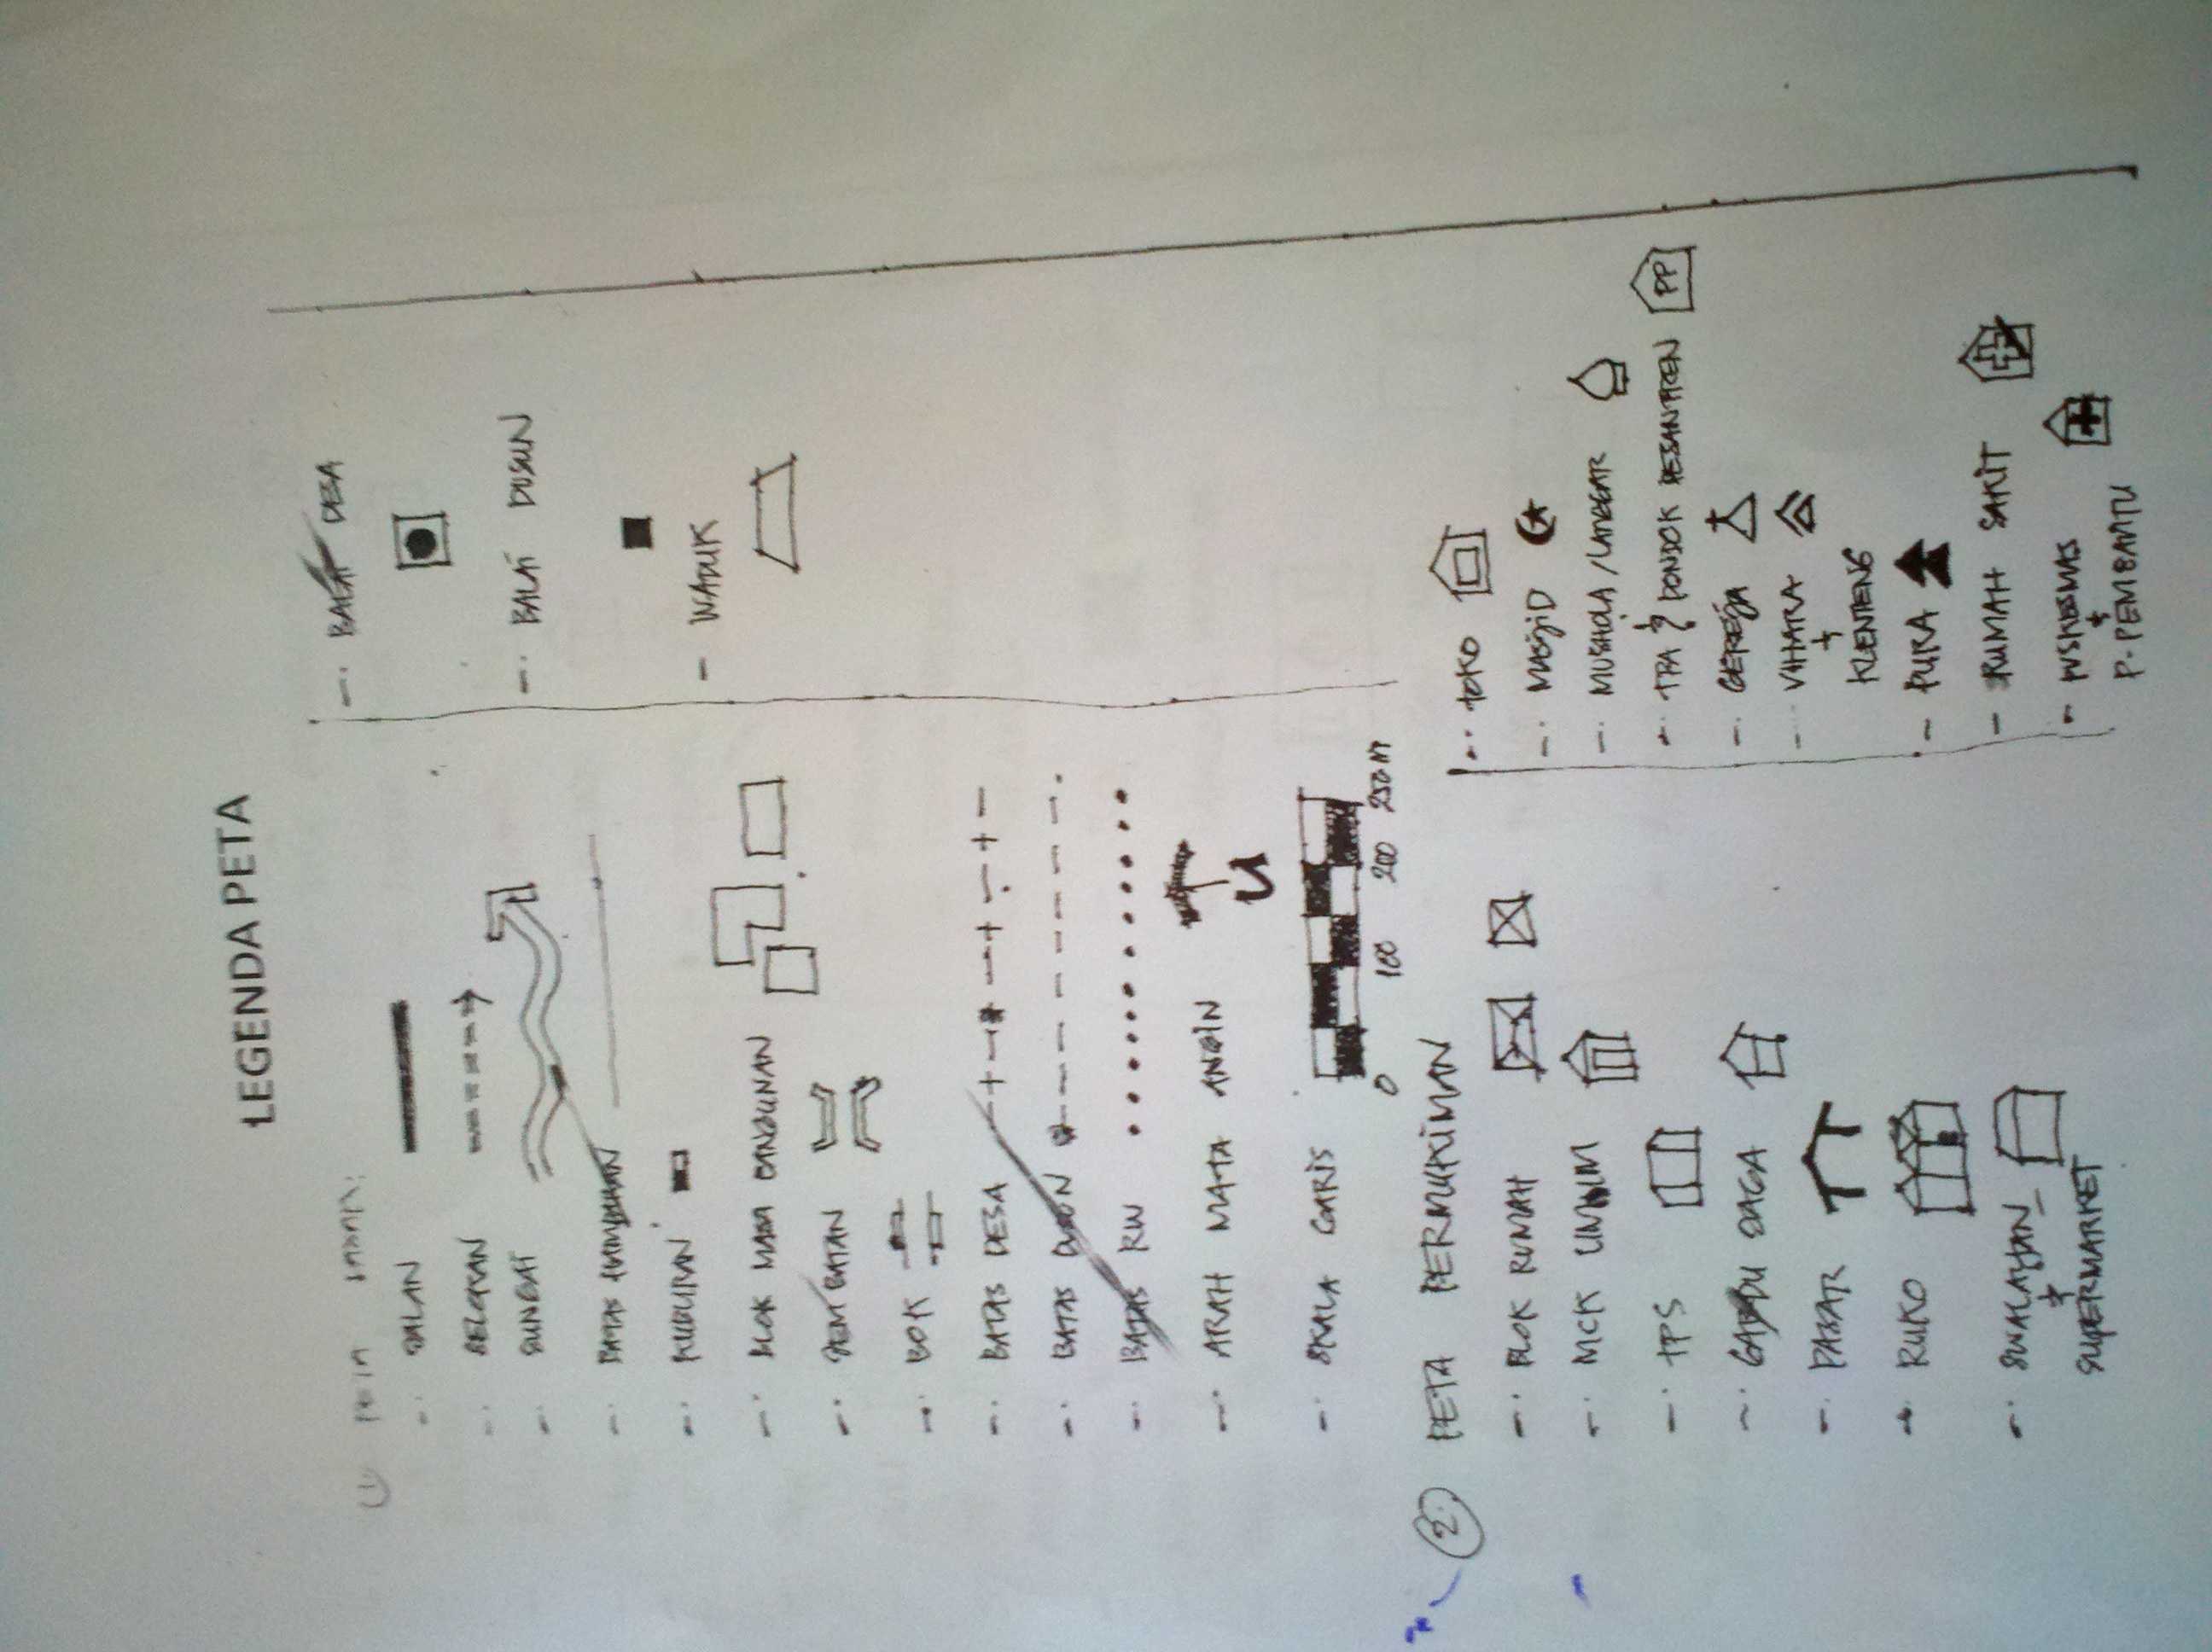 LEGENDA PETA
① PETA DASAR:
-. JALAN
-. SELOKAN
-. SUNGAI
-. BATAS
-. KUBURAN
-. BLOK MASA BANGUNAN
-. JEMBATAN
-. BOK
-. BATAS DESA
-. BATAS DUSUN
-. BATAS RW
-. ARAH MATA ANGIN
U
-. SKALA GARIS
0 100 200 250 M
-. BALAI DESA
-. BALAI DUSUN
- WADUK
②. PETA PERMUKIMAN
-. BLOK RUMAH
-. MCK UMUM
-. TPS
-. GARDU JAGA
-. PASAR
-. RUKO
-. SWALAYAN
+
SUPERMARKET
-. TOKO
-. MASJID
-. MUSHOLA / LANGGAR
-. TPA & PONDOK PESANTREN PP
-. GEREJA
-. VIHARA
+
KLENTENG
- PURA
- RUMAH SAKIT
-. PUSKESMAS
+
P. PEMBANTU